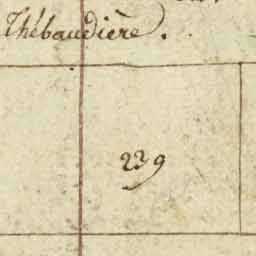 Thébaudière.
239